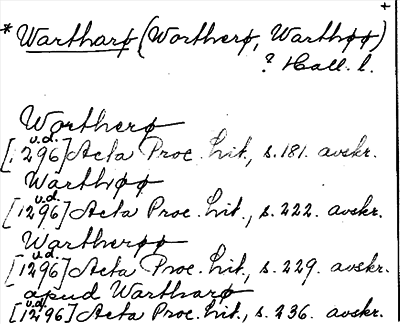 +
*Wartharø (Wortherø, Warthøø)
? Hall. l.
Wortherø
[u.d. 1296] Acta Proc. lit., s. 181. avskr.
Warthøø
[u.d. 1296] Acta Proc. lit., s. 222. avskr.
Wartherøø
[u.d. 1296] Acta Proc. lit., s. 229. avskr.
apud Wartharø
[1296] Acta Proc. lit., s. 236. avskr.